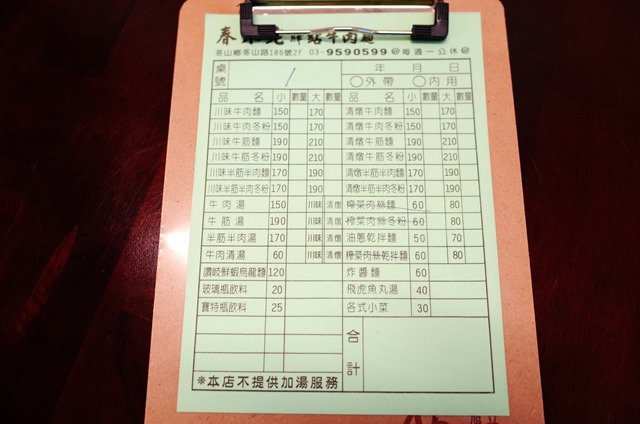 驛站牛肉麵
冬山鄉冬山路186號2F 03-9590599 @每週一公休@
桌號 年 月 日
○外帶 ○內用
品名 小 數量 大 數量 品名 小 數量 大 數量
川味牛肉麵 150 170 清燉牛肉麵 150 170
川味牛肉冬粉 150 170 清燉牛肉冬粉 150 170
川味牛筋麵 190 210 清燉牛筋麵 190 210
川味牛筋冬粉 190 210 清燉牛筋冬粉 190 210
川味半筋半肉麵 170 190 清燉半筋半肉麵 170 190
川味半筋半肉冬粉 170 190 清燉半筋半肉冬粉 170 190
牛肉湯 150 川味 清燉 榨菜肉絲麵 60 80
牛筋湯 190 川味 清燉 榨菜肉絲冬粉 60 80
半筋半肉湯 170 川味 清燉 油蔥乾拌麵 50 70
牛肉清湯 60 川味 清燉 榨菜肉絲乾拌麵 60 80
讚岐鮮蝦烏龍麵 120 炸醬麵 60
玻璃瓶飲料 20 飛虎魚丸湯 40
寶特瓶飲料 25 各式小菜 30
合計
※本店不提供加湯服務